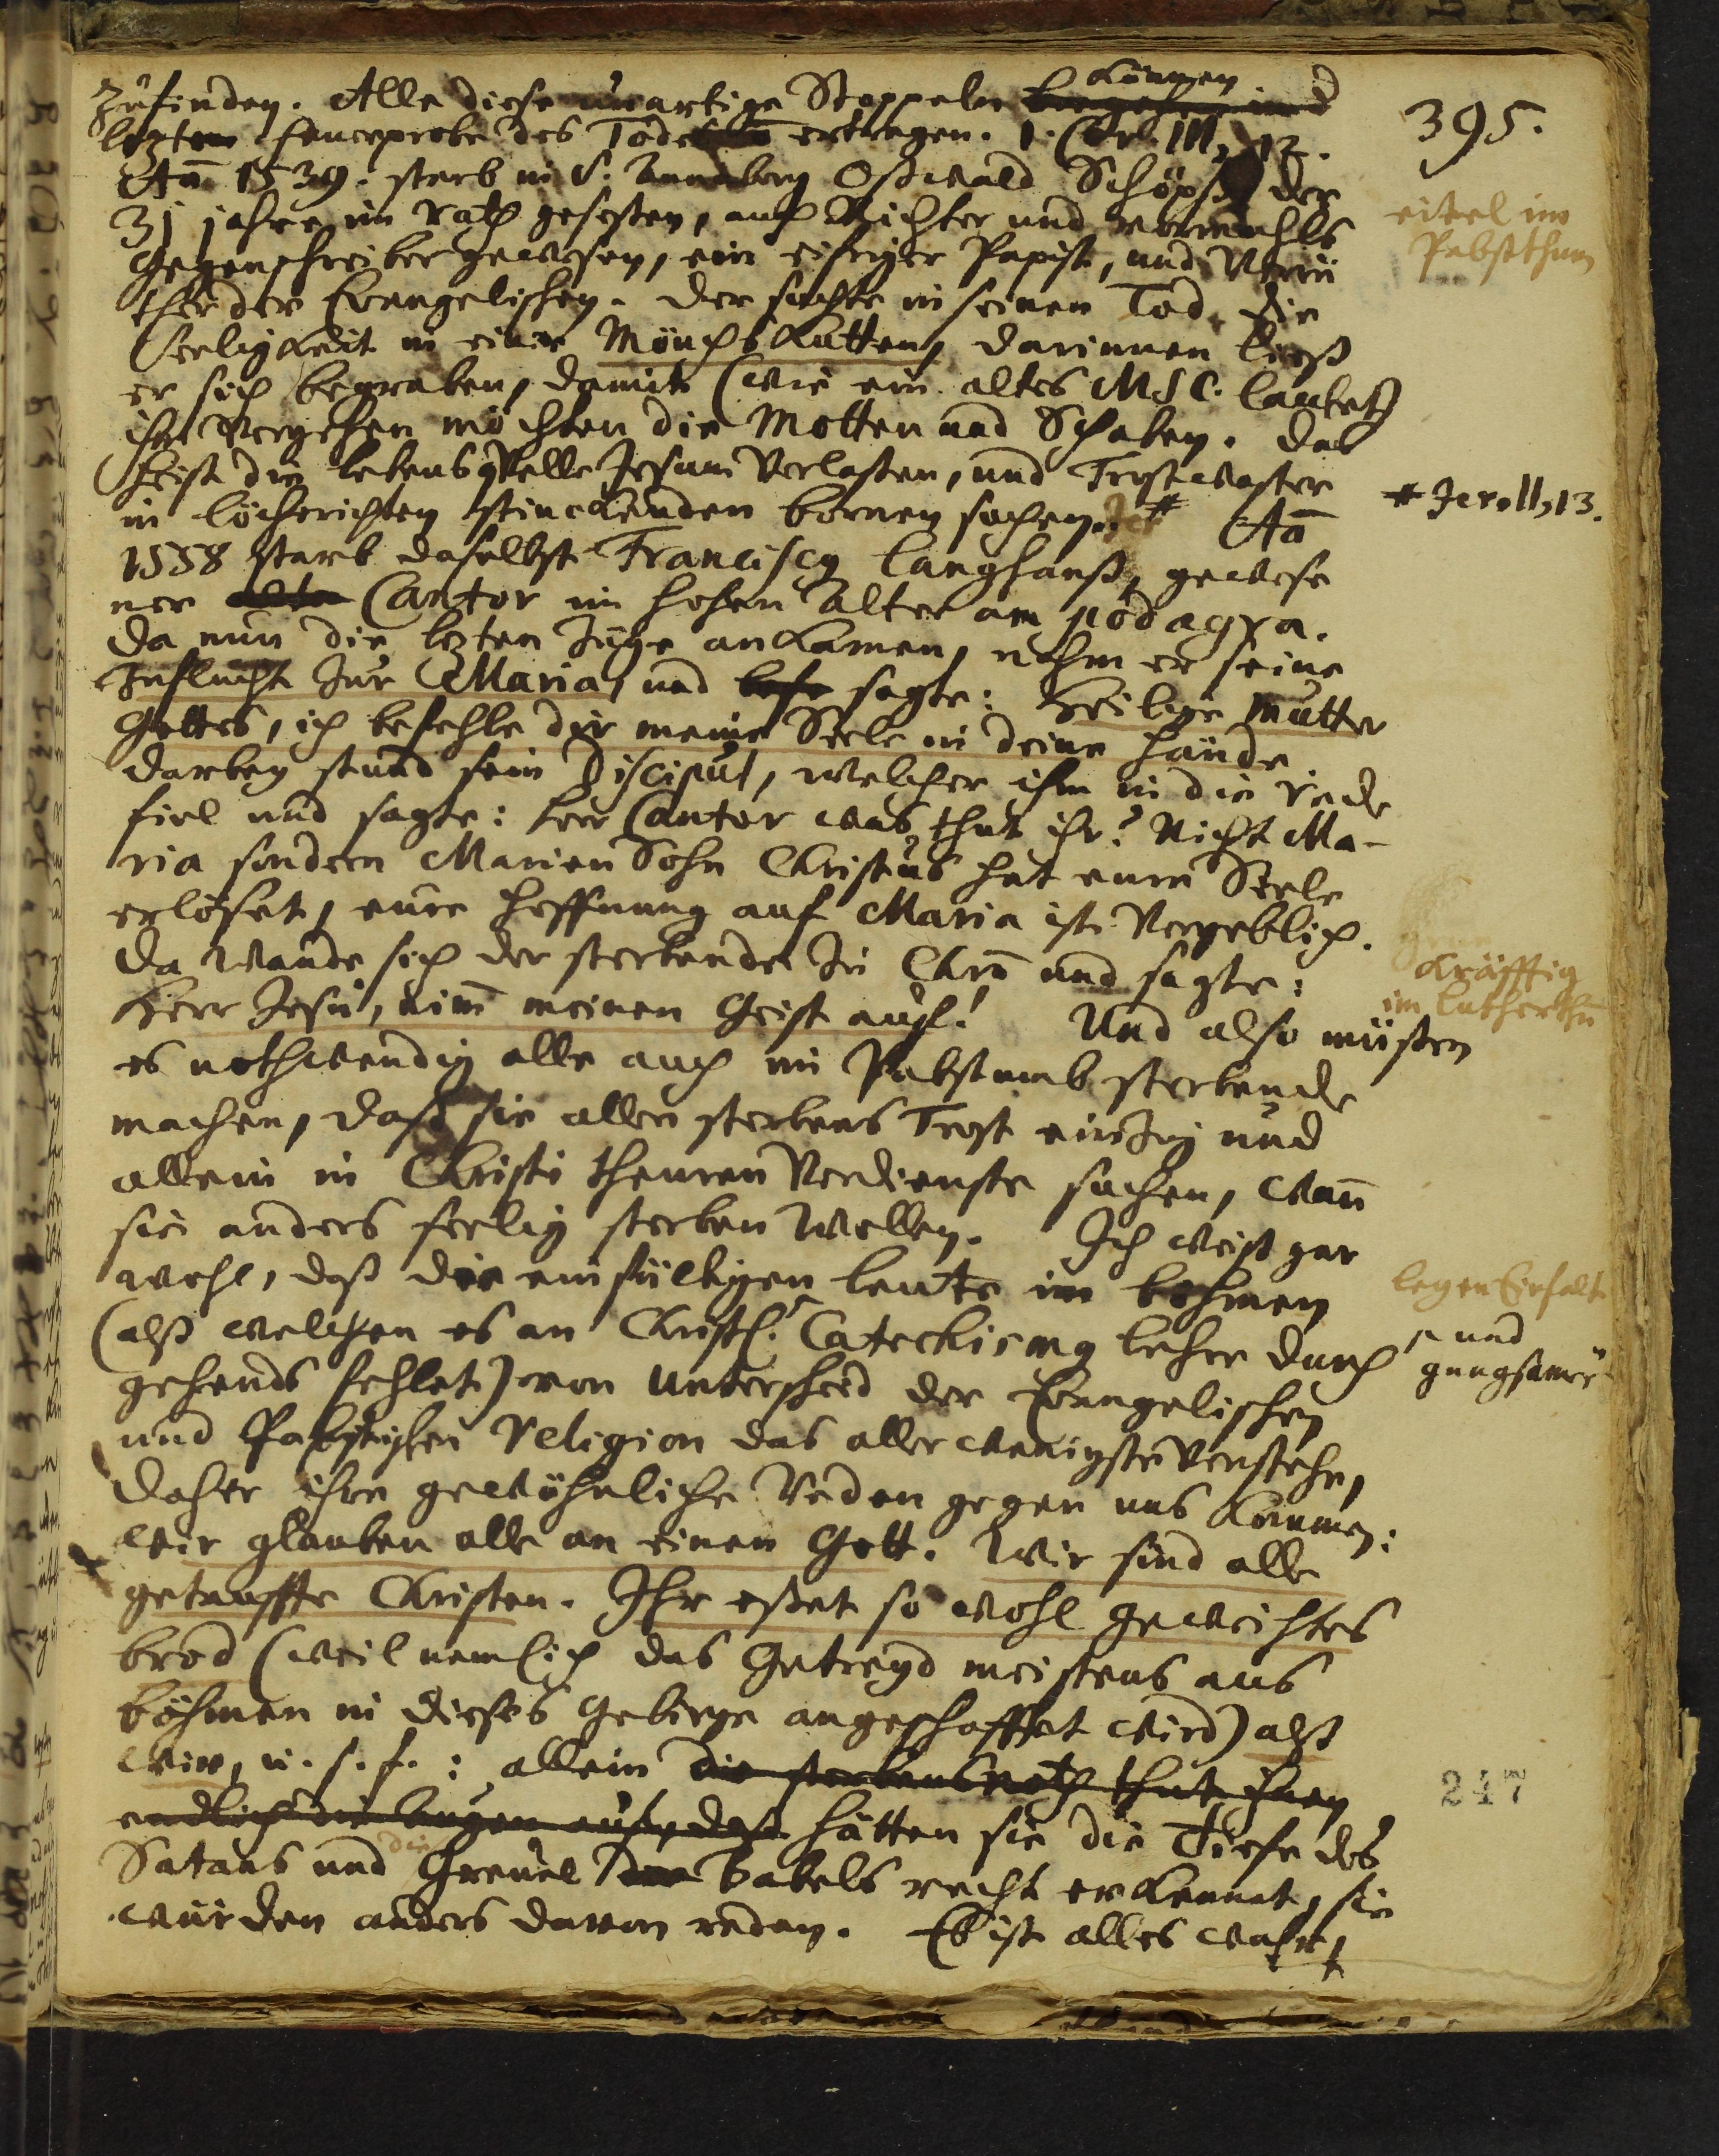 395.
zufinden. Alle diese unartige Stoppeln können
lezten feuerprobe des Todes ertragen. 1. Cor. III, 12.
Añ 1539. starb in S. Annaberg Oßwald Schöpß der
31 jahre im Rath gesessen, auch Richter und vormahls
Gegenschreiber gewesen, ein eifriger Papist, und
der Evangelischen. der suchte in seinen Tod die
Seeligkeit in einer Mönchs Kutten, darinnen ließ
er sich begraben, damit (wie ein altes MSC. lautet)
ihn verzehren möchten die Motten und Schaben. das
heist die lebensQvelle Jesum verlassen, und Trostwasser
in löcherichten stinckenden bornen suchen. # Añ
1558 starb daselbst Franciscq Langhanß, gewese
ner Cantor im hohen Alter am podagra.
da nun die lezten Züge ankamen, nahm er seine
Zuflucht zur Maria, und sagte: Heilige Mutter
Gottes, ich befehle dir meine Seele in deine hände
darbey stund sein Discipul, welcher ihm in die rede
fiel und sagte: herr Cantor was thut ihr? Nicht Ma-
ria sondern Marien Sohn Christus hat eure Seele
erlöset, eure hoffnung auf Maria ist vergeblich.
da wande sich der sterbende zu Chro und sagte:
Herr Jesu, nim̃ meinen Geist auf! Und also müssen
es nothwendig alle auch im Pabstumb sterbende
machen, daß sie allen sterbens Trost einzig und
allein in Christi theuren Verdienste suchen, wañ
sie anders seelig sterben wollen. Ich weiß gar
wohl, daß die einfältigen leute im böhmen
(alß welchen es an Christl. Catechismq lehre durch
gehends fehlet) von unterscheid der Evangelischen
und Päbstischen Religion das allerwenigste verstehe,
daher ihre gewöhnliche Reden gegen uns kommen:
wir glauben alle an einen Gott. Wir sind alle
getauffte Christen. Ihr esset so wohl geweihtes
brod (weil nemlich das Getreyd meistens aus
böhmen in dieses Gebirge angeschaffet wird) alß
wir, u. s. f.: allein die sterbensnoth thut ihnen
endlich die Augen auf, daß hätten sie die Tiefe des
Satans und die Greuel Babels recht erkennet, sie
würden anders davon reden. Es ist alles wahr,
eitel im
Pabstthum
# Jer. II, 13.
kräfftig
im Lutherthũ
legen Einfalt
und
247